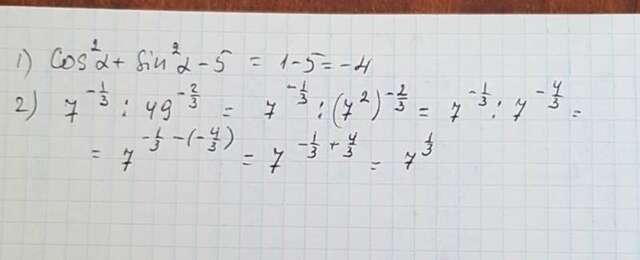 1) Cos²α + Sin²α - 5 = 1-5 = -4
2) 7^{-1/3} : 49^{-2/3} = 7^{-1/3} : (7²)^{-2/3} = 7^{-1/3} : 7^{-4/3} =
= 7^{-1/3 - (-4/3)} = 7^{-1/3 + 4/3} = 7^{1/3}